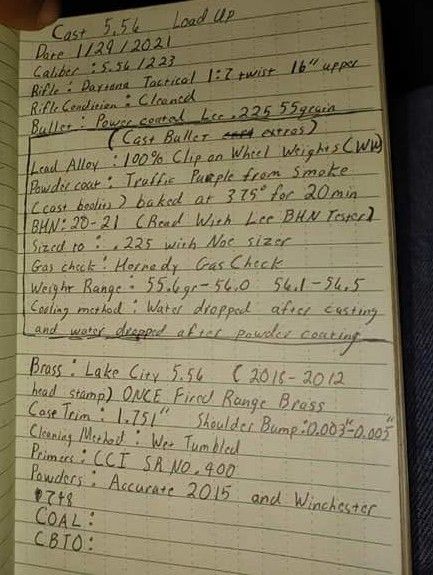 Cast 5.56 Load Up
Date 1/29/2021
Caliber : 5.56/223
Rifle : Daytona Tactical 1:7 twist 16" upper
Rifle Condition : Cleaned
Bullet : Power coated Lee .225 55grain
(Cast Bullet extras)
Lead Alloy : 100% Clip on Wheel Weights (WW)
Powder coat : Traffic Purple from Smoke
(cast boolits) baked at 375° for 20 min
BHN: 20-21 (Read With Lee BHN Tester)
Sized to : .225 with Noe sizer
Gas check : Hornady Gas Check
Weight Range : 55.6gr-56.0 56.1-56.5
Cooling method : Water dropped after casting
and water dropped after powder coating
Brass : Lake City 5.56 (2016-2012
head stamp) ONCE Fired Range Brass
Case Trim : 1.751" Shoulder Bump : 0.003"-0.005"
Cleaning Method : Wet Tumbled
Primers : CCI SR NO. 400
Powders : Accurate 2015 and Winchester
748
COAL :
CBTO :